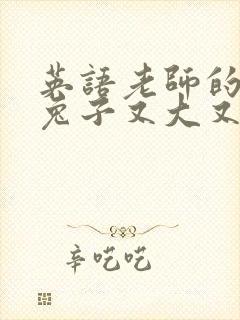 英語老師的
兔子又大又
辛吃吃